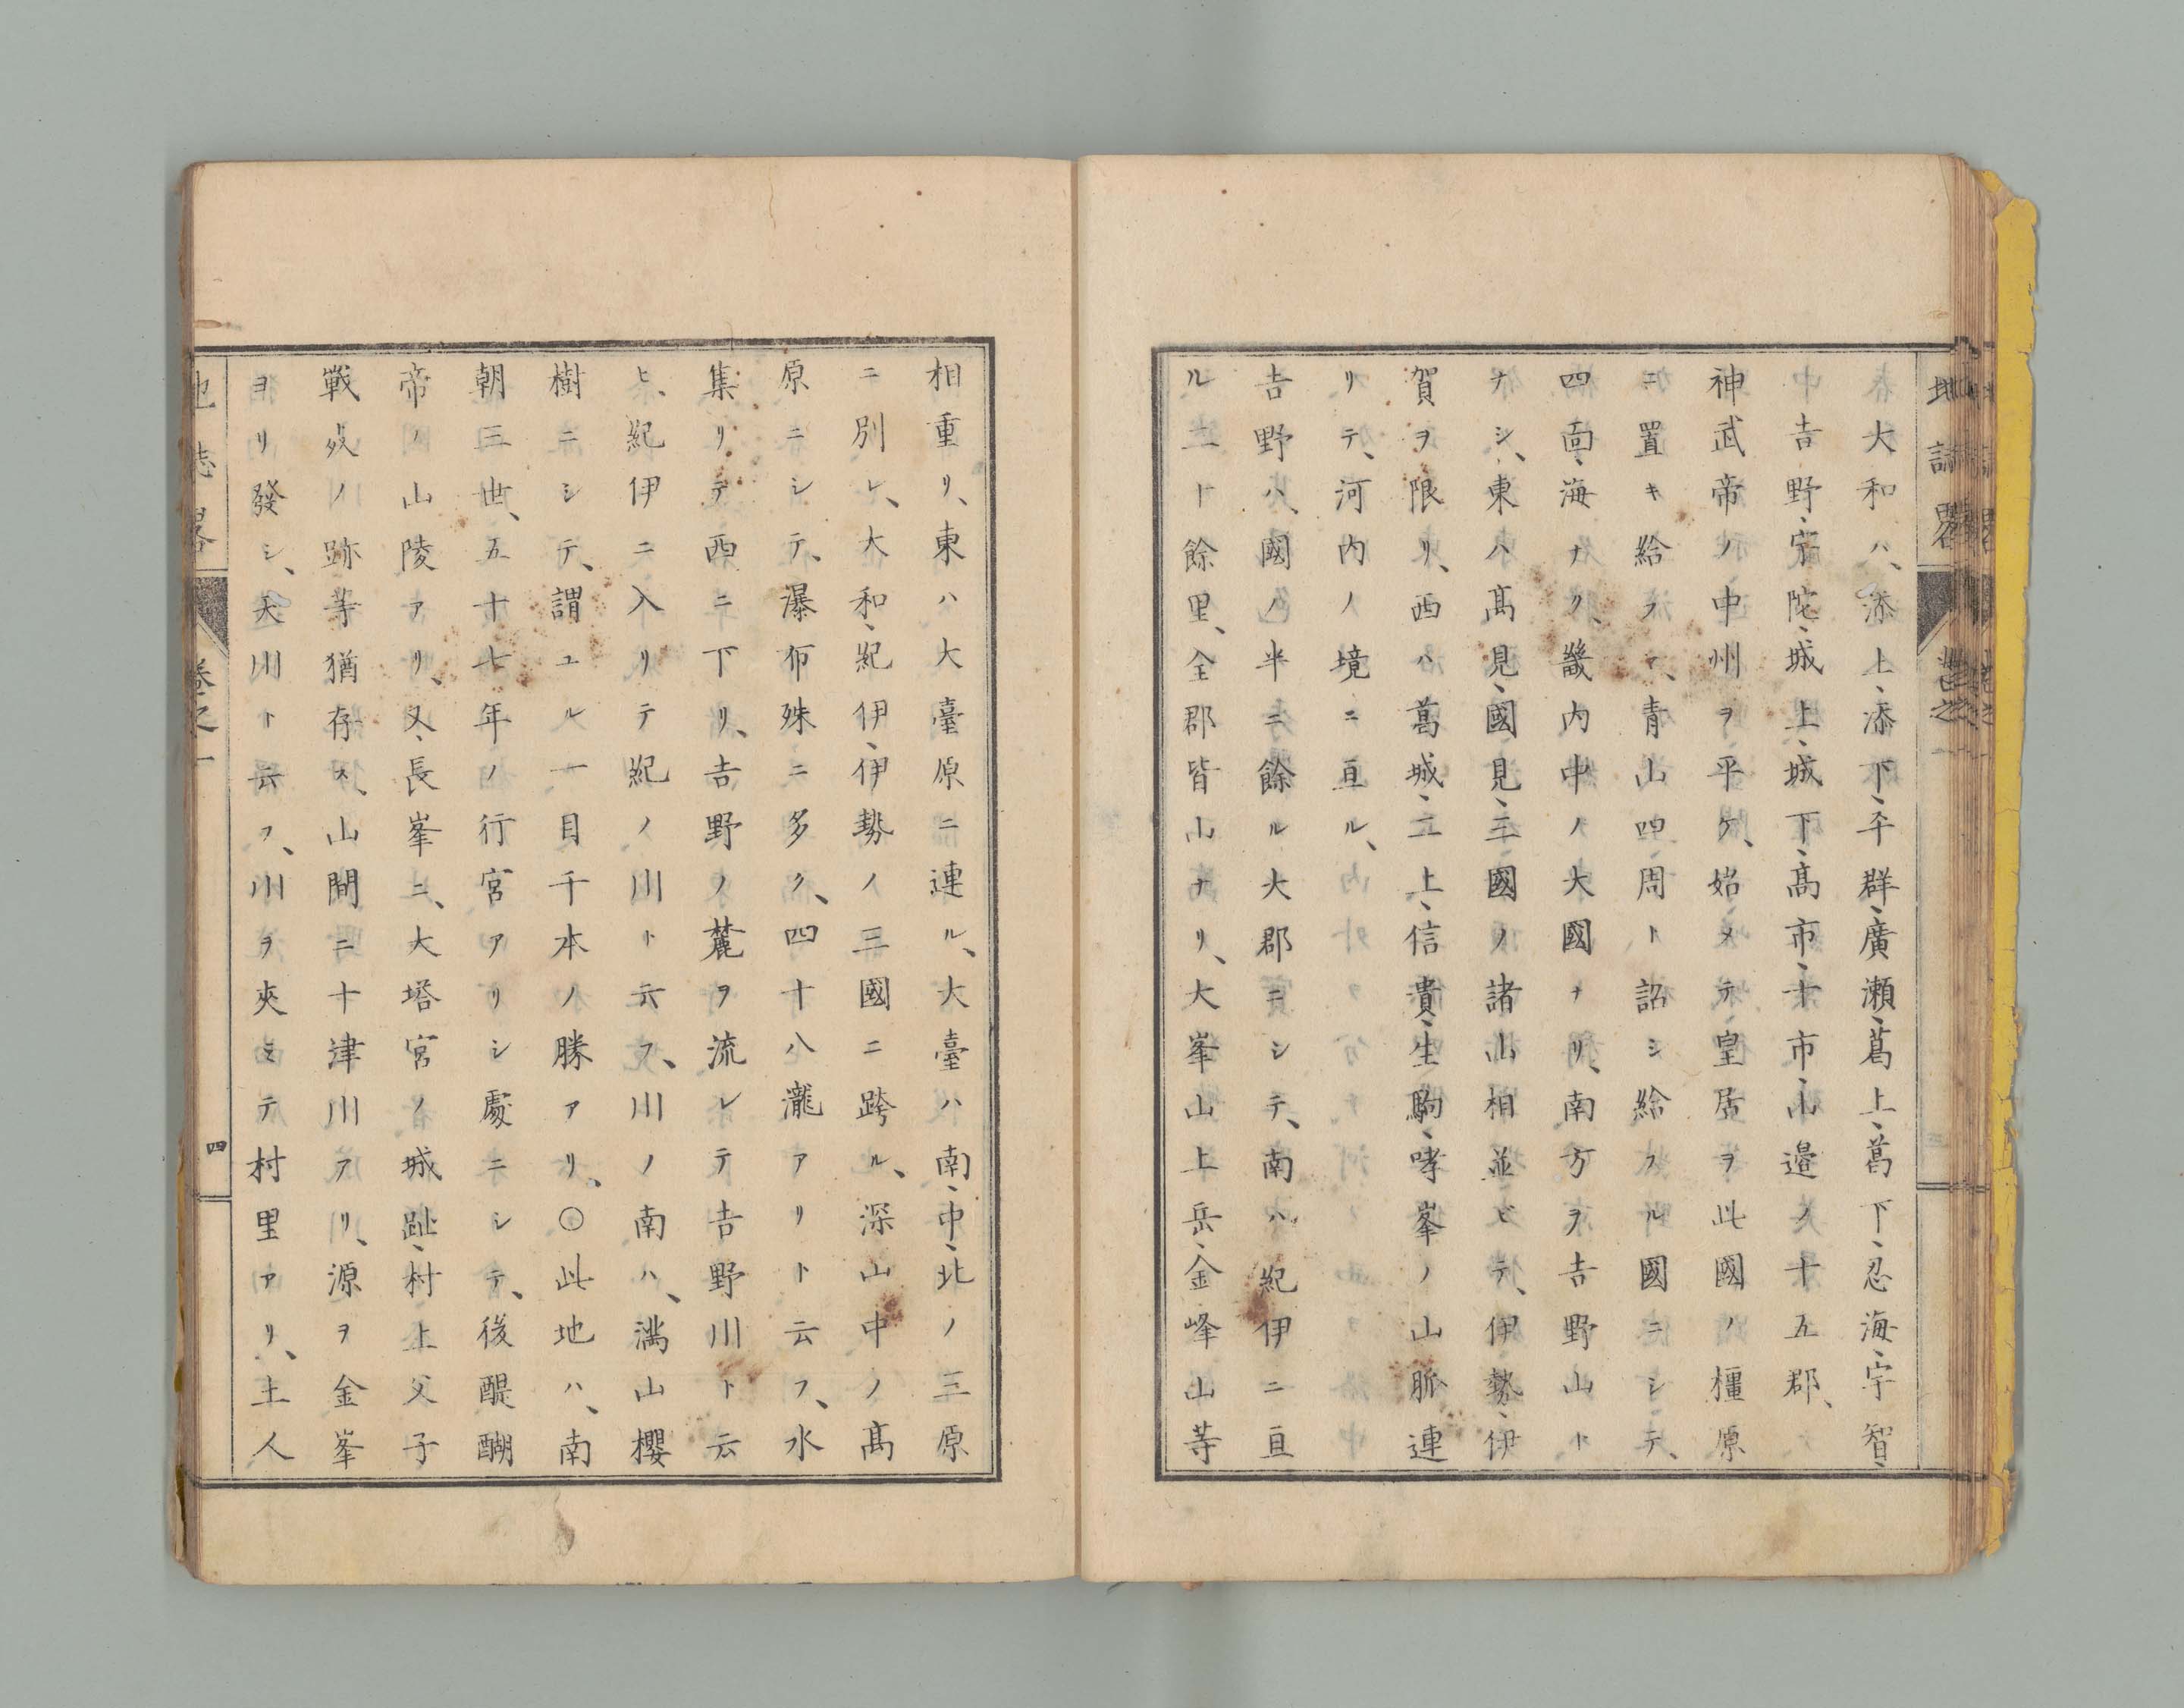 地誌畧 卷之一
大和ハ、添上、添下、平群、廣瀬、葛上、葛下、忍海、宇智、
吉野、宇陀、城上、城下、高市、十市、山邉ノ十五郡、
神武帝ノ中州ヲ平ケ、始メテ、皇居ヲ此國ノ橿原
ニ置キ給フテ、青山四周ト詔シ給フル國ニシテ、
四面海ナク、畿内中ノ大國ナリ、南方ヲ吉野山ト
ナシ、東ハ髙見、國見、三國ノ諸山相並ビテ、伊勢、伊
賀ヲ限リ、西ハ葛城、二上、信貴、生駒、哮峯ノ山脈連
リテ、河内ノ境ニ亘ル、
吉野ハ、國ノ半ニ餘ル大郡ニシテ、南ハ紀伊ニ亘
ル二十餘里、全郡皆山ナリ、大峯山上岳、金峰山等
相重リ、東ハ大臺原ニ連ル、大臺ハ南、中、北ノ三原
ニ別レ、大和、紀伊、伊勢ノ三國ニ跨ル、深山中ノ髙
原ニシテ、瀑布殊ニ多ク、四十八瀧アリト云フ、水
集リテ西ニ下リ、吉野ノ麓ヲ流レテ吉野川ト云
ヒ、紀伊ニ入リテ紀ノ川ト云フ、川ノ南ハ、満山櫻
樹ニシテ、謂ユル一目千本ノ勝アリ、○此地ハ、南
朝三世、五十七年ノ行宮アリシ處ニシテ、後醍醐
帝ノ山陵アリ、又、長峯ニ、大塔宮ノ城趾、村上父子
戰歿ノ跡等猶存ス、山間ニ十津川アリ、源ヲ金峯
ヨリ發シ、天川ト云フ、川ヲ夾ミテ村里アリ、土人
地誌畧 卷之一 四